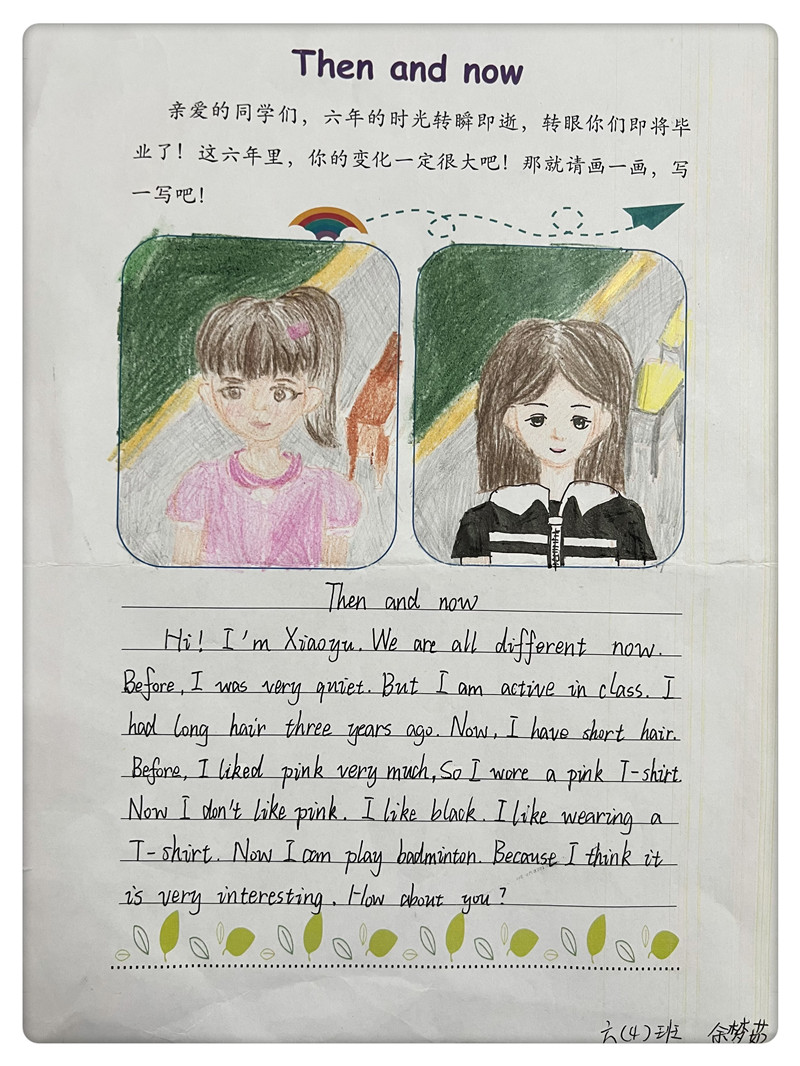 Then and now
亲爱的同学们，六年的时光转瞬即逝，转眼你们即将毕
业了！这六年里，你的变化一定很大吧！那就请画一画，写
一写吧！
Then and now
Hi! I'm Xiaoyu. We are all different now.
Before, I was very quiet. But I am active in class. I
had long hair three years ago. Now, I have short hair.
Before, I liked pink very much, So I wore a pink T-shirt.
Now I don't like pink. I like black. I like wearing a
T-shirt. Now I can play badminton. Because I think it
is very interesting. How about you?
六(4)班 余梦茹